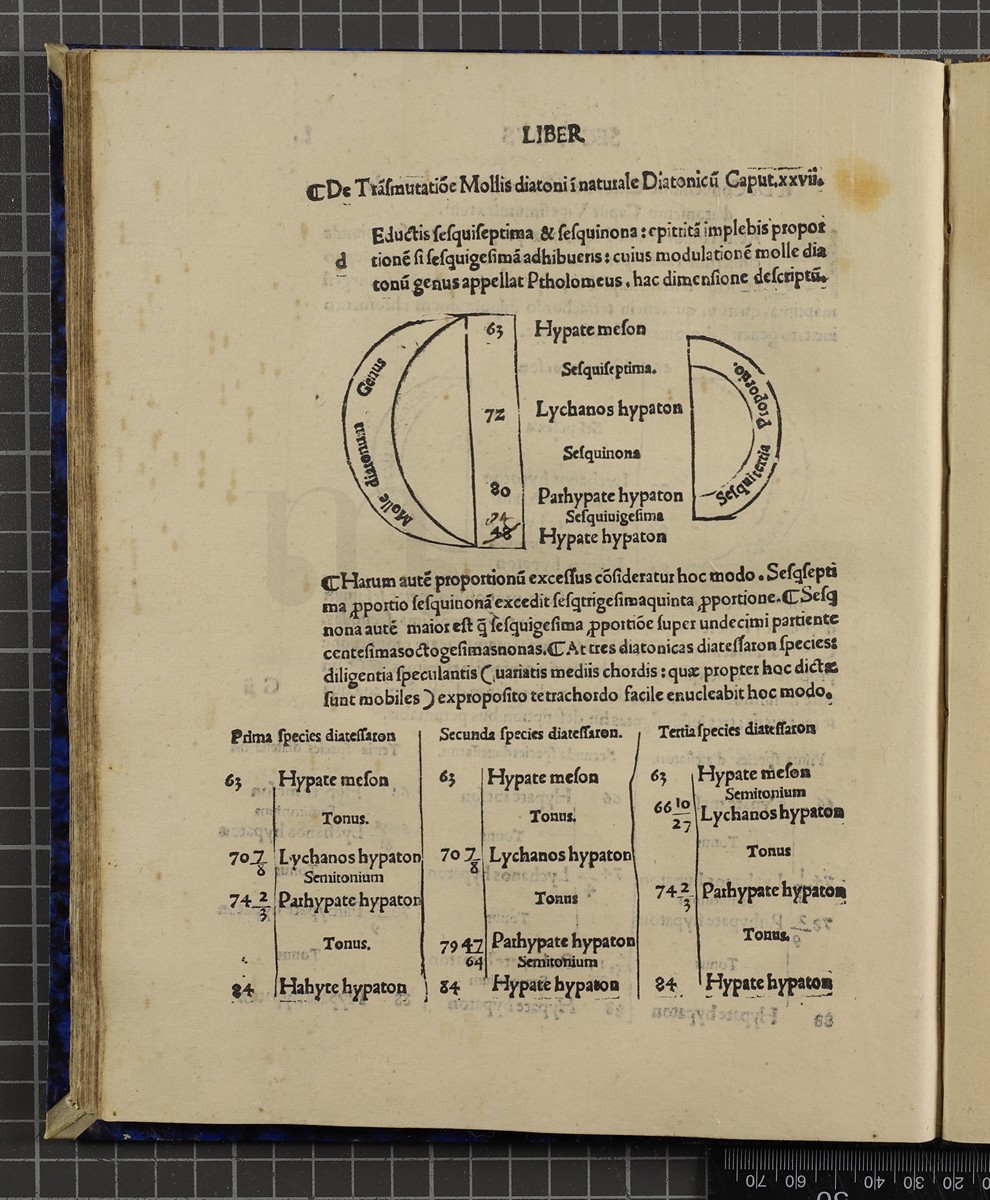 LIBER
⁋De Trãsmutatiõe Mollis diatoni ĩ naturale Diatonicũ Caput.xxvii.
Eductis sesquiseptima & sesquinona : epitritã implebis propor
d tionẽ si sesquigesimã adhibueris : cuius modulationẽ molle dia
tonũ genus appellat Ptholomeus . hac dimensione descriptũ.
Molle diatonum Genus
63 Hypate meson
Sesquiseptima.
72 Lychanos hypaton
Sesquinona
80 Parhypate hypaton
Sesquiuigesima
48 Hypate hypaton
Sesquitertia Proportio.
⁋Harum autẽ proportionũ excessus cõsideratur hoc modo . Sesqsepti
ma ꝓportio sesquinonã excedit sesqtrigesimaquinta ꝓportione.⁋Sesq
nona autẽ maior est q̃ sesquigesima ꝓportiõe super undecimi partiente
centesimasoctogesimasnonas.⁋At tres diatonicas diatessaron species:
diligentia speculantis (uariatis mediis chordis : quæ propter hoc dictæ
sunt mobiles) exproposito tetrachordo facile enucleabit hoc modo.
Prima species diatessaron
63 Hypate meson
Tonus.
70 7/8 Lychanos hypaton
Semitonium
74 2/3 Parhypate hypaton
Tonus.
84 Hahyte hypaton
Secunda species diatessaron.
63 Hypate meson
Tonus.
70 7/8 Lychanos hypaton
Tonus
79 47/64 Parhypate hypaton
Semitonium
84 Hypate hypaton
Tertia species diatessaron
63 Hypate meson
Semitonium
66 10/27 Lychanos hypaton
Tonus
74 2/3 Parhypate hypaton
Tonus.
84 Hypate hypaton
70 60 40 30 20
50